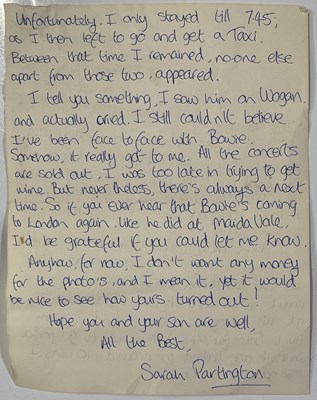 Unfortunately. I only stayed till 7.45;
as I then left to go and get a Taxi.
Between that time I remained, no one else
apart from those two, appeared.
I tell you something, I saw him on Wogan.
and actually cried. I still couldn't believe
I've been face to face with Bowie.
Somehow, it really got to me. All the concerts
are sold out. I was too late in trying to get
mine. But never theless, there's always a next
time. So if you ever hear that Bowie's coming
to London again, like he did at Maida Vale,
I'd be grateful if you could let me know.
Anyhow, for now, I don't want any money
for the photo's, and I mean it, yet it would
be nice to see how yours turned out!
Hope you and your son are well,
All the Best,
Sarah Partington.